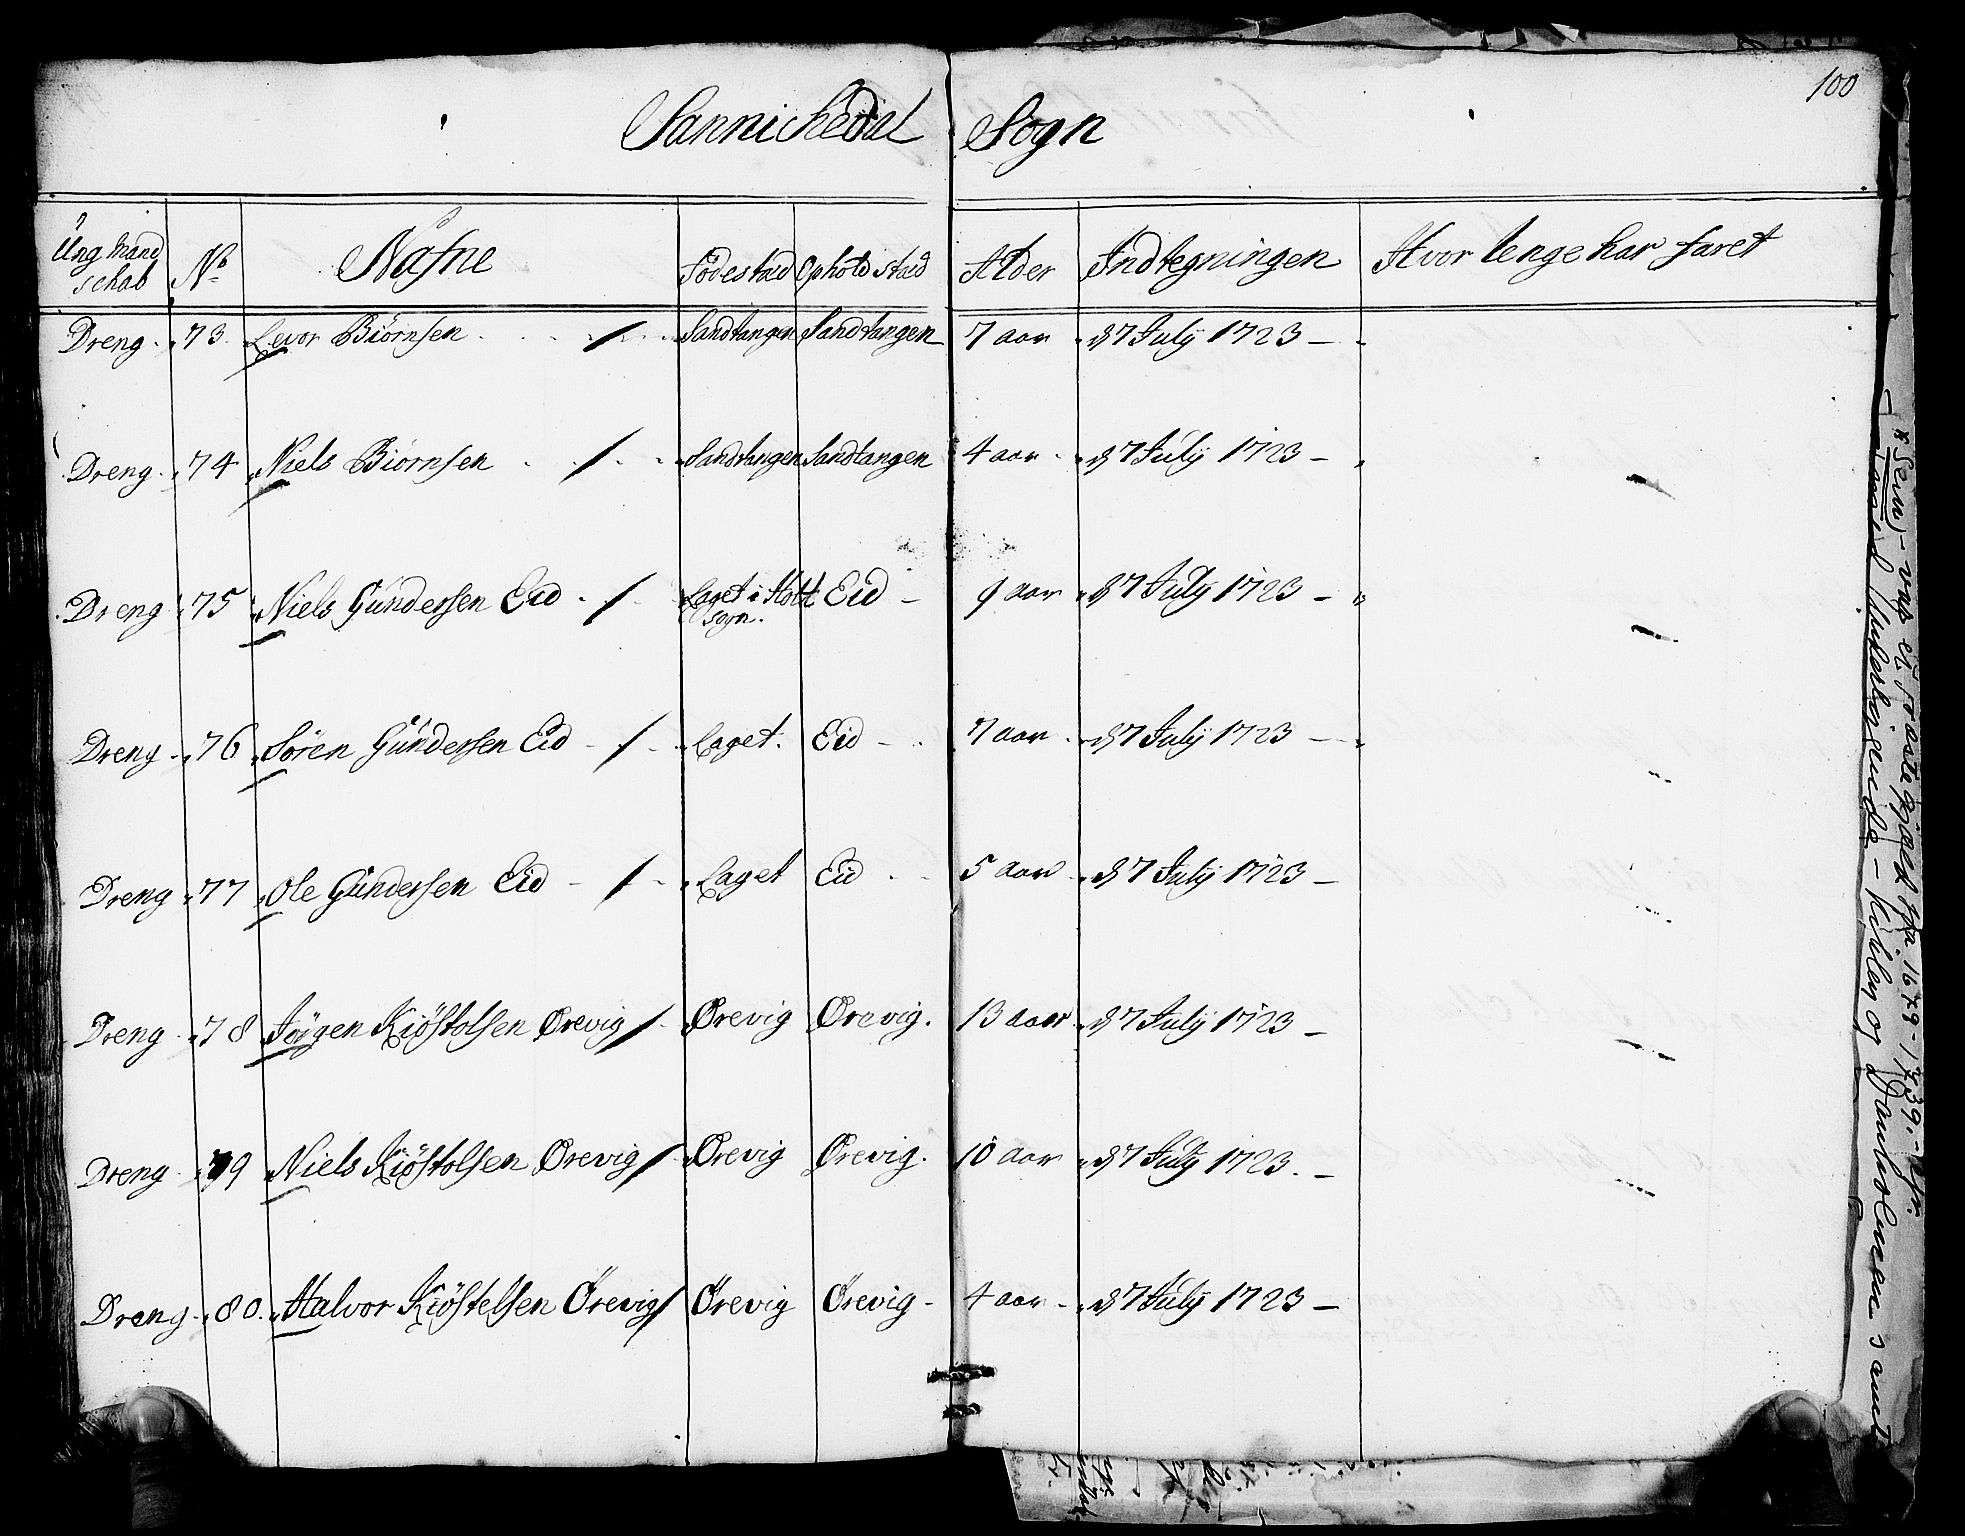 100
Sannichedal Sogn
Ung Mand schab No Nafne Födestæd Ophold stæd Alder Indtegningen Hvor lenge har faret
Dreng 73 Levor Biörnsen Sandtangen Sandtangen 7 aar d 7 July 1723
Dreng 74 Niels Biörnsen Sandtangen Sandtangen 4 aar d 7 July 1723
Dreng 75 Niels Gundersen Eid Laget i Holt sogn. Eid 9 aar d 7 July 1723
Dreng 76 Sören Gundersen Eid Laget. Eid 7 aar d 7 July 1723
Dreng 77 Ole Gundersen Eid Laget Eid 5 aar d 7 July 1723
Dreng 78 Jörgen Kiöstolsen Ørevig Ørevig Ørevig. 13 aar d 7 July 1723
Dreng 79 Niels Kiöstolsen Ørevig Ørevig Ørevig. 10 aar d 7 July 1723.
Dreng 80. Halvor Kiöstelsen Örevig Örevig Örevig 4 aar d 7 July 1723
* Sem) - var et præstegjæld fra 1679-1739,
underliggende - kirker og samt